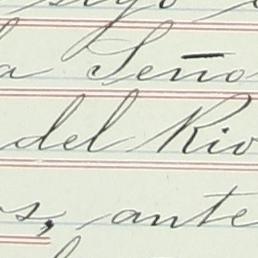 a Seño
del Rio
os, ante